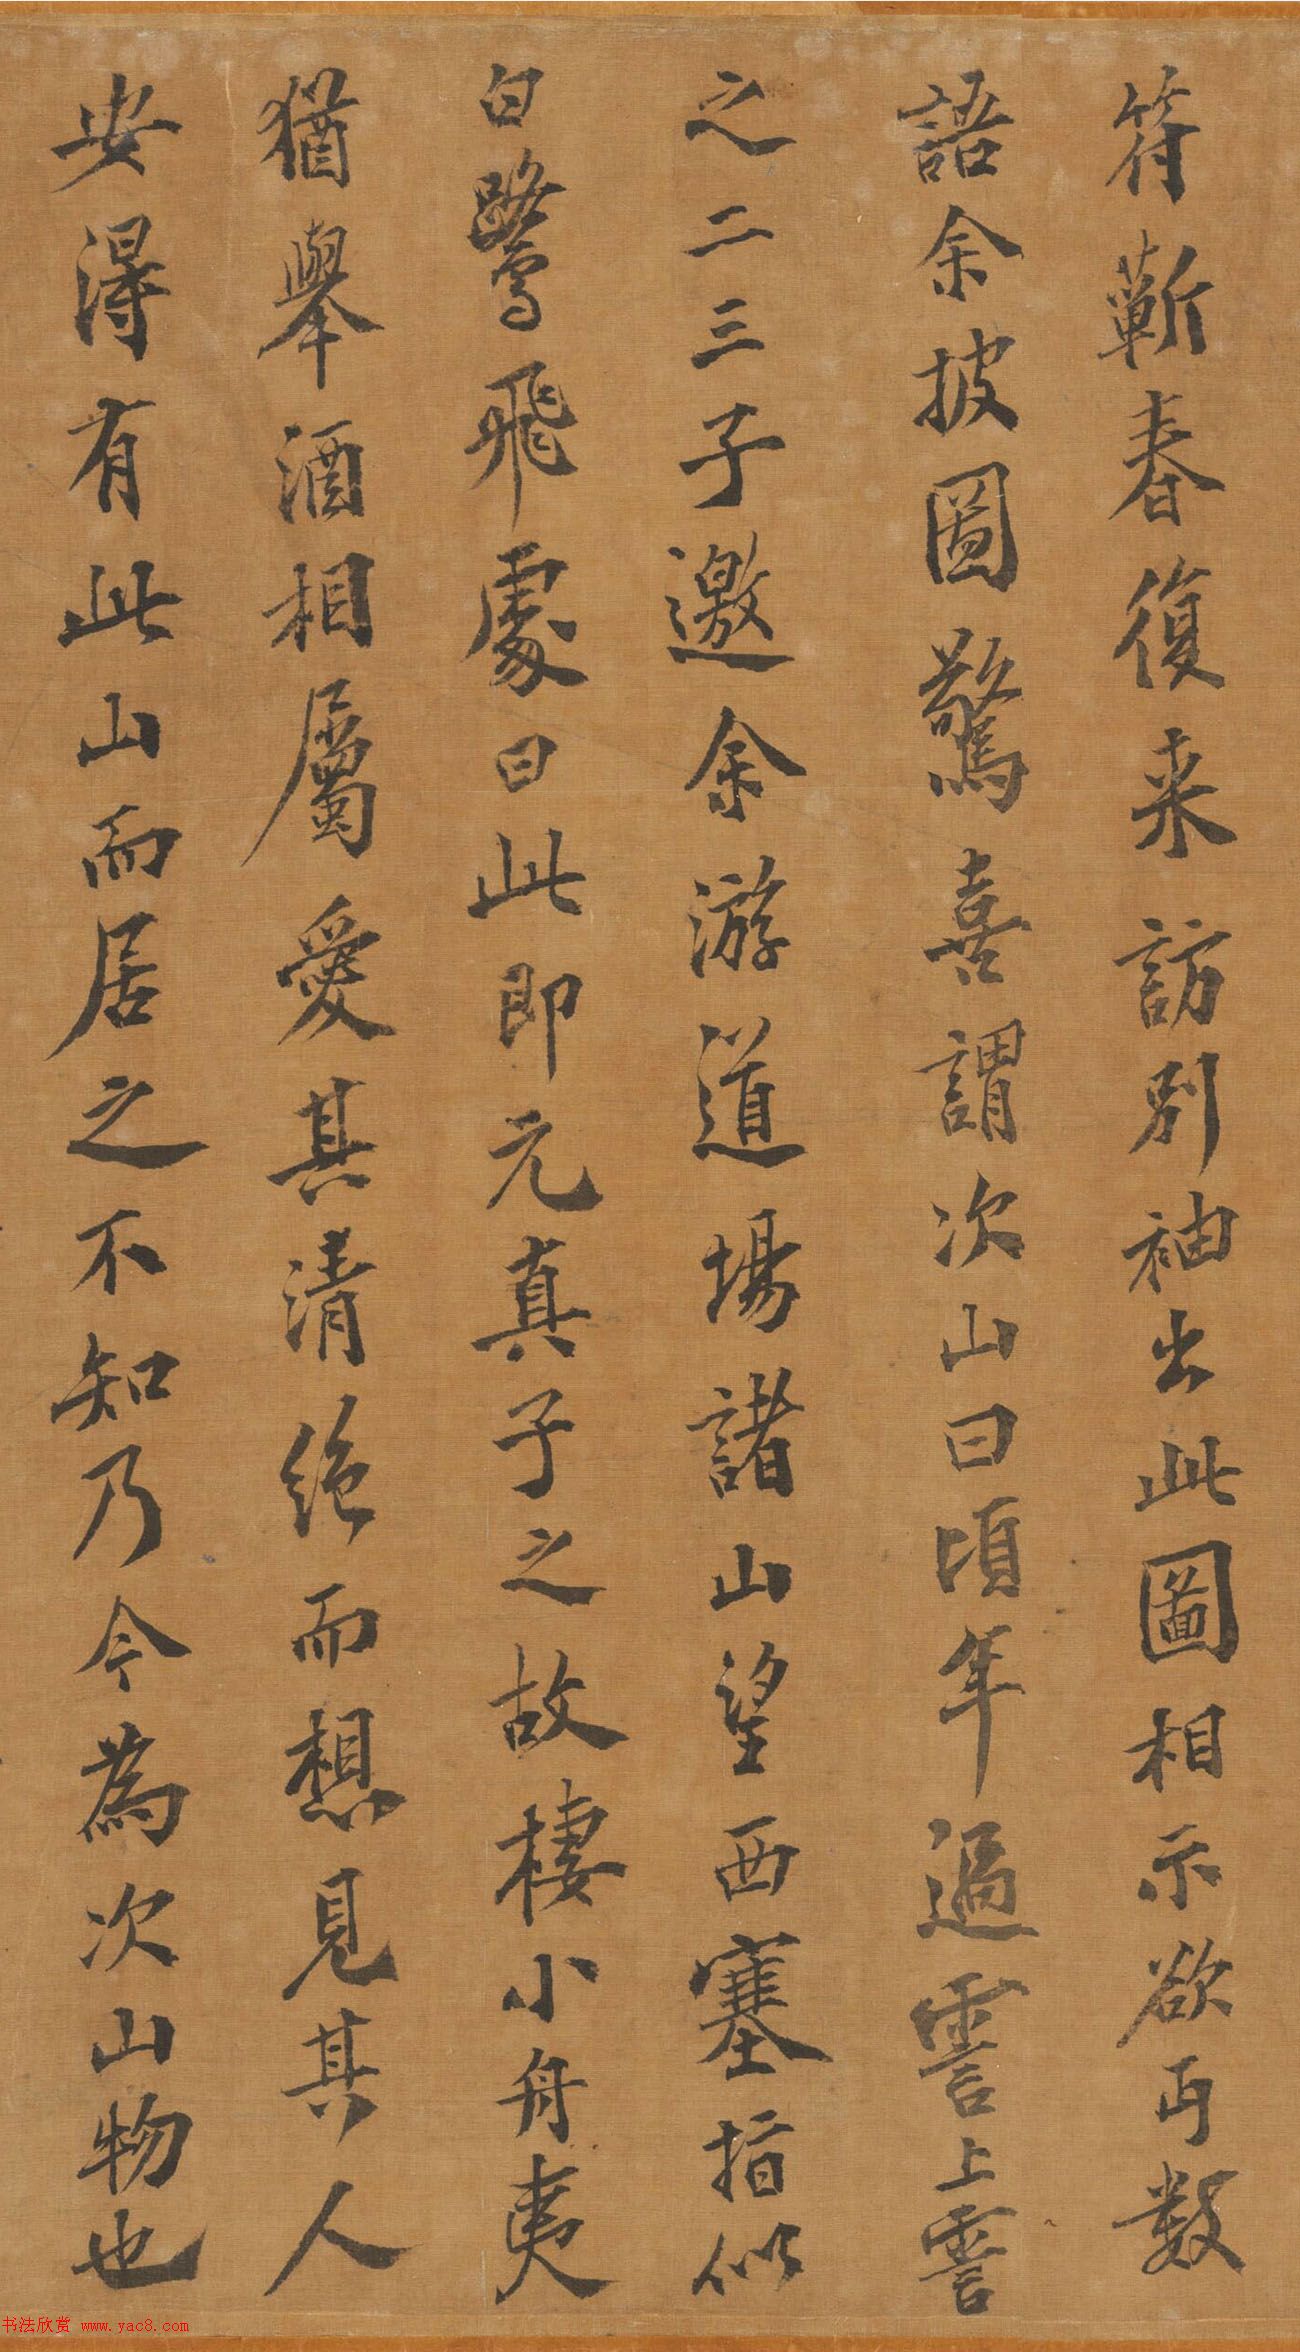 符蘄春復来訪別袖出此圖相示欲丐数
語余披圖驚喜謂次山曰頃年過霅上霅
之二三子邀余游道場諸山望西塞指似
白鷺飛處曰此即元真子之故棲小舟夷
猶舉酒相屬愛其清絶而想見其人
安得有此山而居之不知乃今為次山物也
书法欣赏 www.yac8.com